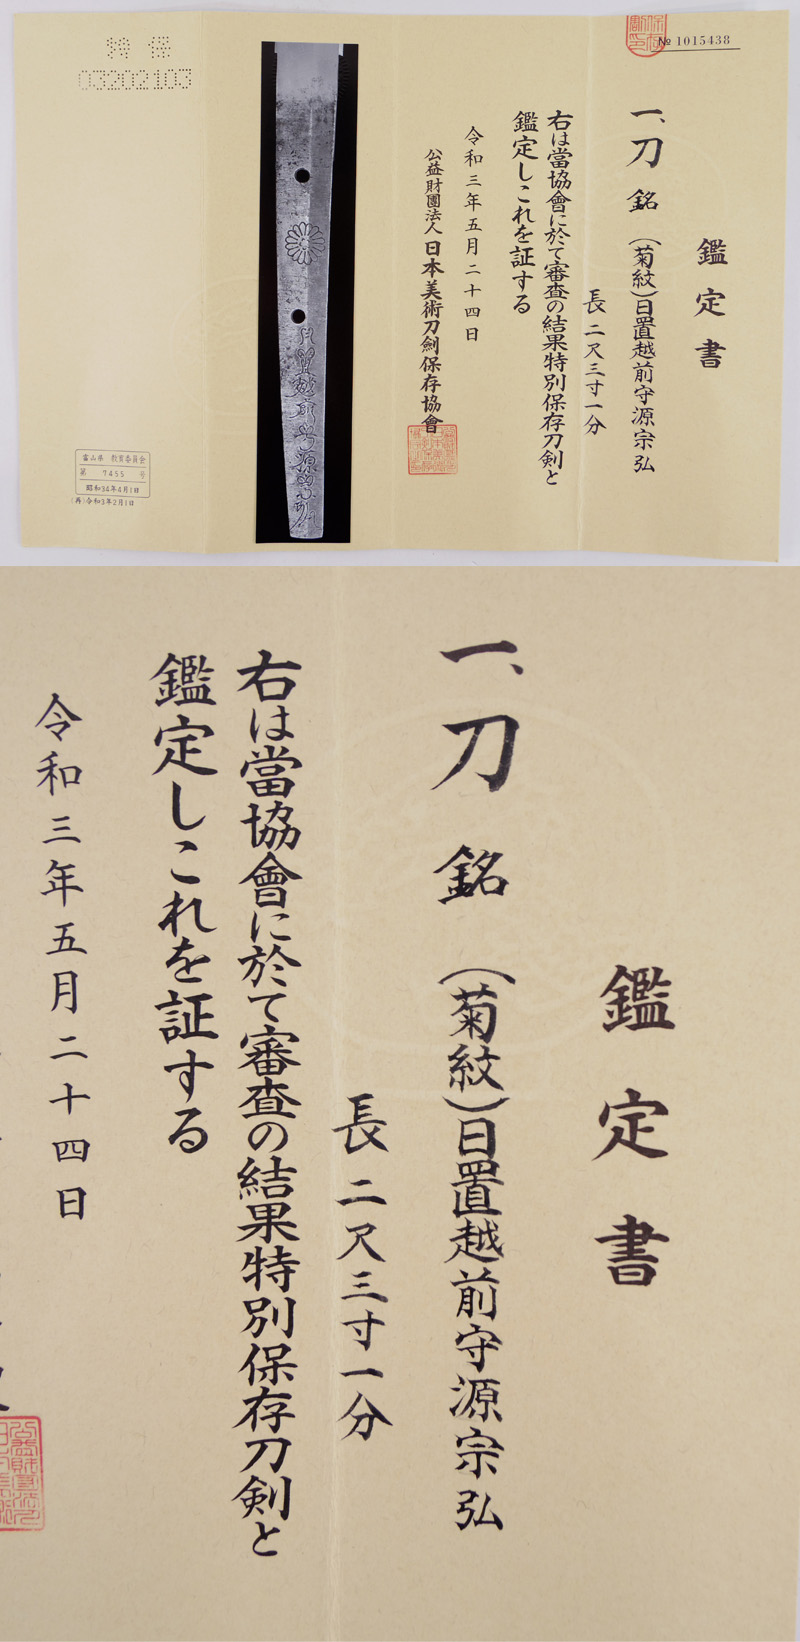 No 1015438
鑑定書
一、刀 銘 (菊紋)日置越前守源宗弘
長二尺三寸一分
右は當協會に於て審査の結果特別保存刀剣と
鑑定しこれを証する
令和三年五月二十四日
公益財團法人日本美術刀劍保存協會
特保
03202103
富山県 教育委員会
第 7455 号
昭和34年4月1日
(再)令和3年2月1日
鑑定書
一、刀 銘 (菊紋)日置越前守源宗弘
長二尺三寸一分
右は當協會に於て審査の結果特別保存刀剣と
鑑定しこれを証する
令和三年五月二十四日